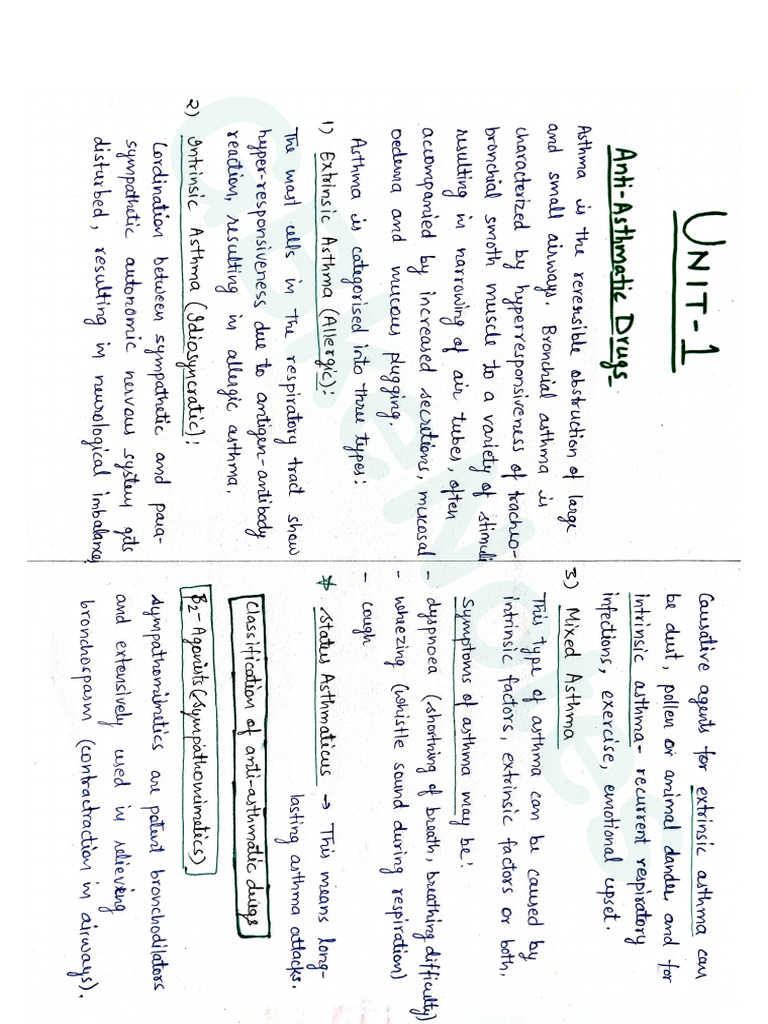 UNIT-1
Anti-Asthmatic Drugs
Asthma is the reversible obstruction of large
and small airways. Bronchial asthma is
characterized by hyperresponsiveness of tracheo-
bronchial smoth muscle to a variety of stimuli
resulting in narrowing of air tubes, often
accompanied by increased secretions, mucosal
oedema and mucous plugging.
Asthma is categorised into three types:
1) Extrinsic Asthma (Allergic):
The mast cells in the respiratory tract show
hyper-responsiveness due to antigen-antibody
reaction, resulting in allergic asthma.
2) Intrinsic Asthma (Idiosyncratic):
Cordination between sympathetic and para-
sympathetic autonomic nervous system gets
disturbed, resulting in neurological imbalance,
Causative agents for extrinsic asthma can
be dust, pollen or animal dander and for
intrinsic asthma- recurrent respiratory
infections, exercise, emotional upset.
3) Mixed Asthma
This type of asthma can be caused by
intrinsic factors, extrinsic factors or both.
Symptoms of asthma may be:
- dyspnoea (shortning of breath, breathing difficulty)
- wheezing (whistle sound during respiration)
- cough.
* Status Asthmaticus → This means long-
lasting asthma attacks.
Classification of anti-asthmatic drugs
B2-Agonists (Sympathomimetics)
sympathomimetics are potent bronchodilators
and extensively used in relieving
bronchospasm (contractraction in airways).